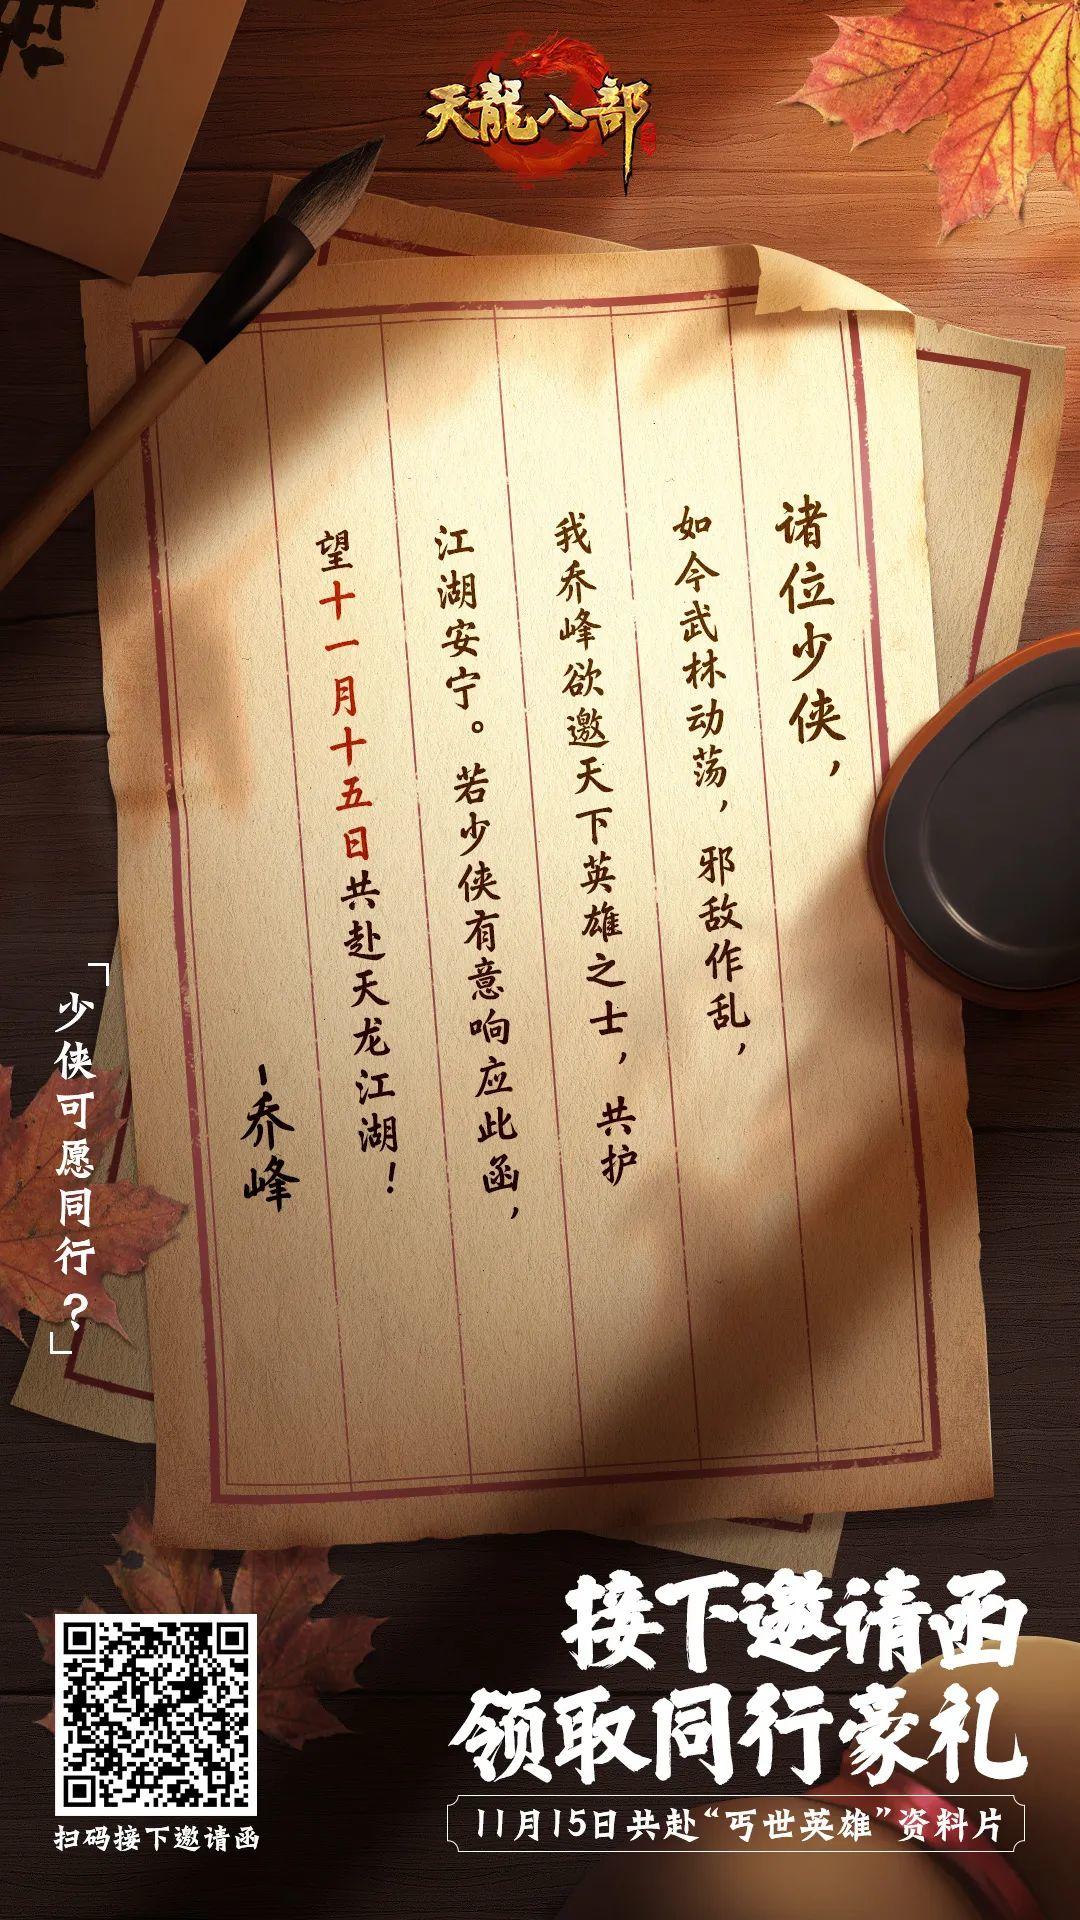 天龍八部
诸位少侠，
如今武林动荡，邪敌作乱，
我乔峰欲邀天下英雄之士，共护
江湖安宁。若少侠有意响应此函，
望十一月十五日共赴天龙江湖！
-乔峰
「少侠可愿同行？」
接下邀请函
领取同行豪礼
11月15日共赴“丐世英雄”资料片
扫码接下邀请函